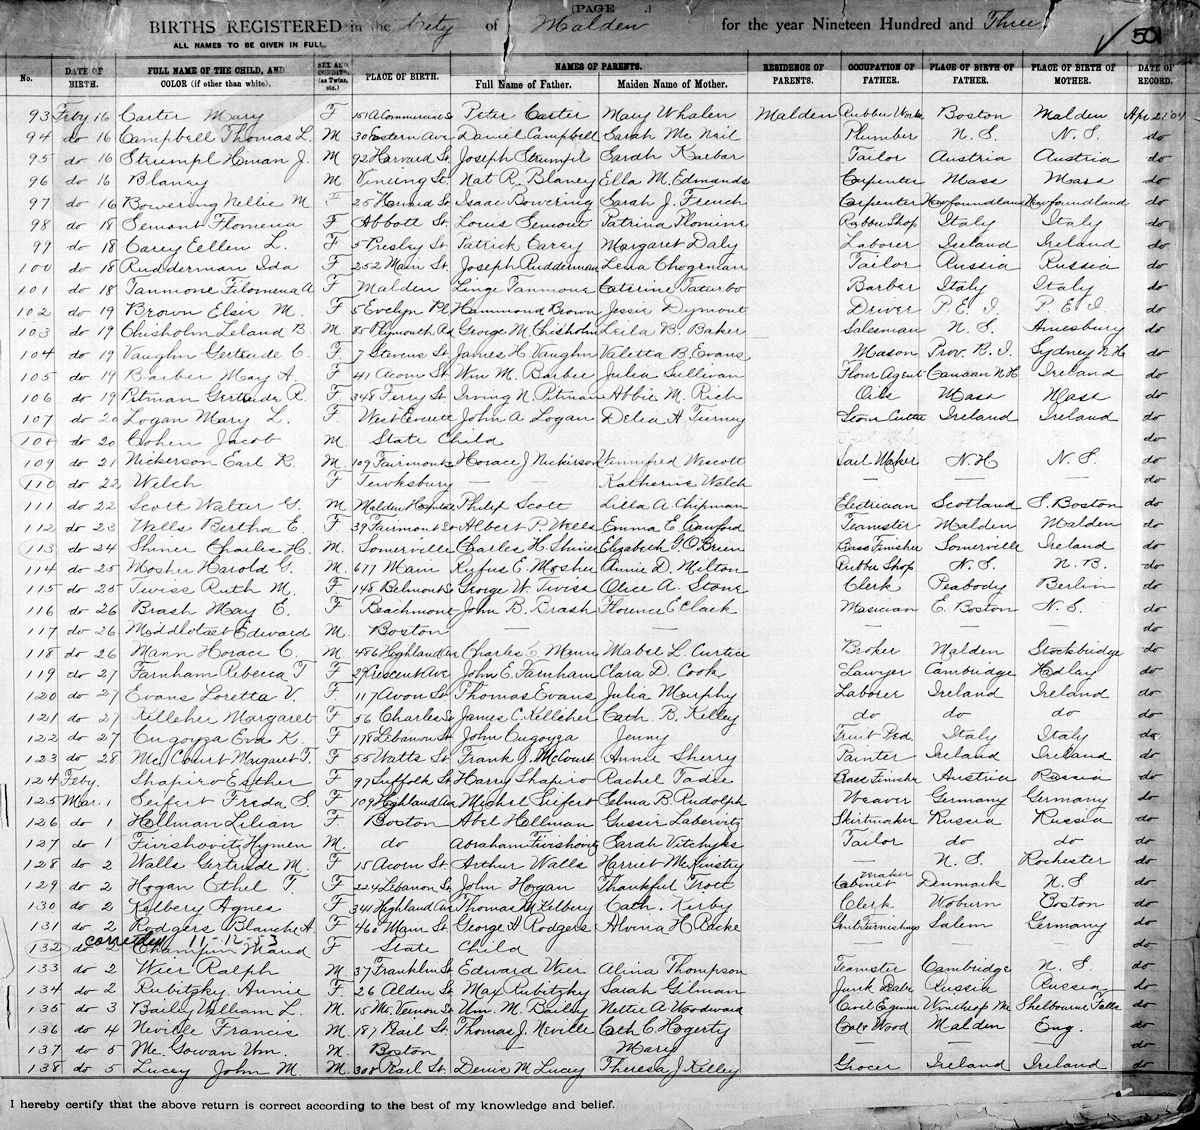 [PAGE .]
BIRTHS REGISTERED in the City of Malden for the year Nineteen Hundred and Three 501
ALL NAMES TO BE GIVEN IN FULL.
No. DATE OF BIRTH. FULL NAME OF THE CHILD, AND COLOR (if other than white). SEX AND CONDIT'N. (as Twins, etc.) PLACE OF BIRTH. NAMES OF PARENTS. Full Name of Father. Maiden Name of Mother. RESIDENCE OF PARENTS. OCCUPATION OF FATHER. PLACE OF BIRTH OF FATHER. PLACE OF BIRTH OF MOTHER. DATE OF RECORD.
93 Feby 16 Carter Mary F 151 A Commercial S Peter Carter Mary Whalen Malden Rubber Works Boston Malden Apr 21 '04
94 do 16 Campbell Thomas L. M 30 Eastern Ave Daniel Campbell Sarah Mc Neil Plumber N. S. N. S. do
95 do 16 Strumpf Himan J. M 92 Harvard St Joseph Strumpf Sarah Karbar Tailor Austria Austria do
96 do 16 Blaney M Vincing St. Nat R. Blaney Ella M. Edmands Carpenter Mass Mass do
97 do 16 Bowering Nellie M F 25 Howard St Isaac Bowering Sarah J. French Carpenter Newfoundland Newfoundland do
98 do 18 Semont Flomena F Abbott St. Louis Semont Patrina Plomine Rubber Shop Italy Italy do
99 do 18 Carey Eellen L. F 5 Presley St. Patrick Carey Margaret Daly Laborer Ireland Ireland do
100 do 18 Rudderman Ida F 252 Main St. Joseph Rudderman Lena Chogrman Tailor Russia Russia do
101 do 18 Tanmone Filomena A F Malden Linge Tanmone Caterine Taturbo Barber Italy Italy do
102 do 19 Brown Elsie M. F 5 Evelyn Pl Hammond Brown Jessie Dymont Driver P. E. I. P. E. I. do
103 do 19 Chisholm Leland B M 85 Plymouth Rd George M Chisholm Leila B. Baker Salesman N. S. Amesbury do
104 do 19 Vaughn Gertrude C. F 7 Stevens St. James H Vaughn Valetta B. Evans Mason Prov. R. I. Sydney N. H do
105 do 19 Barber May A. F 41 Acorn St. Wm M. Barber Julia Sullivan Flour Agent Canaan N. H Ireland do
106 do 19 Pitman Gertrude R. F 348 Ferry St. Irving N. Pitman Abbie M. Rich Oils Mass Mass do
107 do 20 Logan Mary L. F. West Everett John A Logan Delia A Tierney Stone Cutter Ireland Ireland do
108 do 20 Cohen Jacob M State Child do
109 do 21 Nickerson Earl R. M. 109 Fairmont S Horace J Nickerson Winnifred Wescott Sail Maker N. H N. S. do
110 do 22 Welch F Tewksbury — — Katherine Welch — — — do
111 do 22 Scott Walter G. M Malden Hospital Philip Scott Lilla A Chipman Electrician Scotland S. Boston do
112 do 23 Wells Bertha E. F 39 Fairmont St Albert P. Wells Emma E Crawford Teamster Malden Malden do
113 do 24 Shiner Charles H. M. Somerville Charles H. Shiner Elizabeth G. O'Brien Brass Finisher Somerville Ireland do
114 do 25 Mosher Harold G. M. 611 Main Rufus E. Mosher Annie D. Milton Rubber Shop N. S. N. B. do
115 do 25 Twiss Ruth M. F 148 Belmont St George W. Twiss Olice A. Stone Clerk Peabody Berlin do
116 do 26 Brash May E. F Beachmont John B. Brash Florence E Clark Musician E. Boston N. S. do
117 do 26 Edward M. Boston — — — — — do
118 do 26 Mann Horace C. M 486 Highland Av Charles E. Mann Mabel L. Curtice Broker Malden Stockbridge do
119 do 27 Farnham Rebecca T F 29 Crescent Ave John E. Farnham Clara D. Cook Lawyer Cambridge Hadley do
120 do 27 Evans Loretta V. F 117 Avon St. Thomas Evans Julia Murphy Laborer Ireland Ireland do
121 do 27 Kelleher Margaret F 56 Charles St James C. Kelleher Cath. B. Kelley do do do do
122 do 27 Cugoyza Eva K. F 178 Lebanon St John Cugoyza Jenny Fruit Ped. Italy Italy do
123 do 28 Mc Court Margaret T. F 55 Watts St. Frank J. McCourt Annie Sherry Painter Ireland Ireland do
124 Feby. Shapiro Esther F 97 Suffolk St Harry Shapiro Rachel Tadie Brass Finisher Austria Russia do
125 Mar. 1 Seifert Freda S. F 109 Highland Ave Michel Seifert Elma B. Rudolph Weaver Germany Germany do
126 do 1 Hellman Lilian F Boston Abel Hellman Gussie Labevitz Skirtmaker Russia Russia do
127 do 1 Fivishovitz Hymen M. do Abraham Fivishovitz Sarah Vitchyks Tailor do do do
128 do 2 Walls Gertrude M. F 15 Acorn St. Arthur Walls Harriet McKinstry — N. S. Rochester do
129 do 2 Hogan Ethel T. F 224 Lebanon St John Hogan Thankful Trott Cabinet maker Denmark N. S do
130 do 2 Kelbery Agnes F 341 Highland Ave Thomas M Kelbery Cath. Kirby Clerk Woburn Boston do
131 do 2 Rodgers Blanche A F 460 Main St. George A Rodgers Alvina H Backe Gents Furnishings Salem Germany do
corrected 11-12-53
132 do 2 Champion Maud F State Child — — — do
133 do 2 Wier Ralph M. 37 Franklin St. Edward Wier Alina Thompson Teamster Cambridge N. S do
134 do 2 Rubitzky Annie F 26 Alden St Max Rubitzky Sarah Gilman Junk Dealer Russia Russia do
135 do 3 Bailey William L. M. 15 Mt. Vernon St Wm. M. Bailey Nettie A Woodward Civil Engineer Winthrop Me Shelbourne Falls do
136 do 4 Neville Francis M. 187 Pearl St. Thomas J. Neville Cath C Hogerty Coal Wood Malden Eng. do
137 do 5 Mc Gowan Wm. M. Boston — Mary — — — do
138 do 5 Lucey John M. M. 308 Pearl St. Denis M Lucey Theresa J Kelley Grocer Ireland Ireland do
I hereby certify that the above return is correct according to the best of my knowledge and belief.